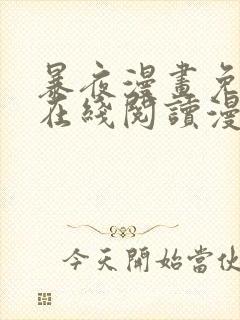 暴夜漫畫免
在綫閱讀漫
今天開始當伙